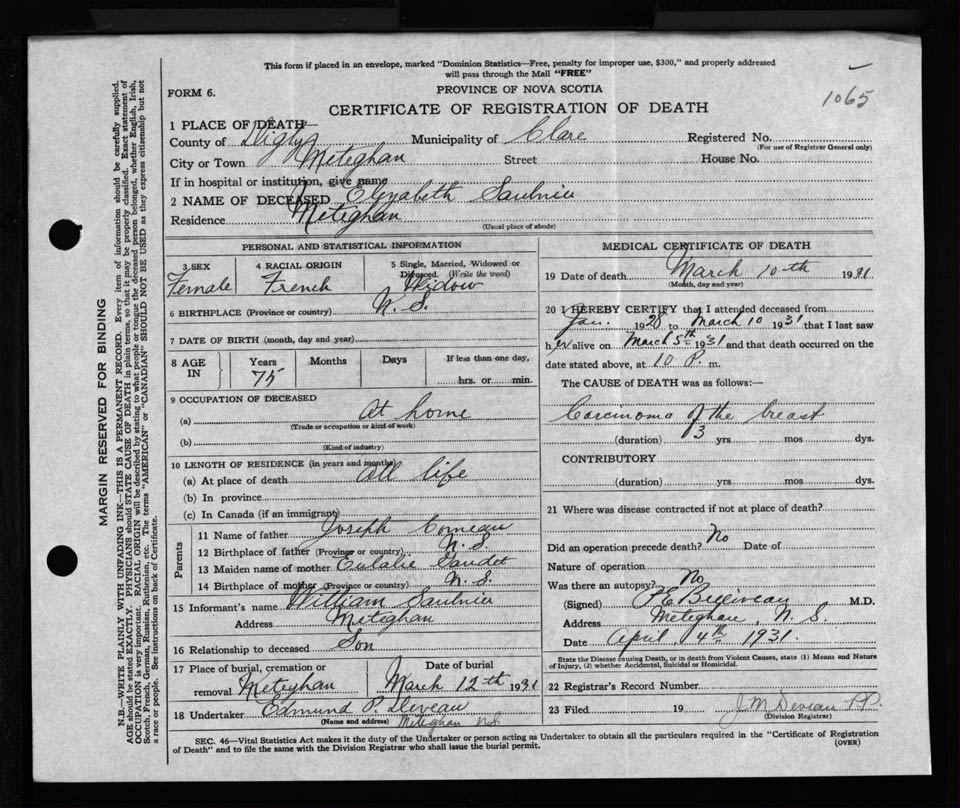 This form if placed in an envelope, marked "Dominion Statistics—Free, penalty for improper use, $300," and properly addressed
will pass through the Mail "FREE"
FORM 6.
PROVINCE OF NOVA SCOTIA
1065
CERTIFICATE OF REGISTRATION OF DEATH
1 PLACE OF DEATH—
County of Digby Municipality of Clare Registered No.
(For use of Registrar General only)
City or Town Meteghan Street House No.
If in hospital or institution, give name
2 NAME OF DECEASED Elizabeth Saulnier
Residence Meteghan
(Usual place of abode)
PERSONAL AND STATISTICAL INFORMATION
3 SEX Female
4 RACIAL ORIGIN French
5 Single, Married, Widowed or
Divorced. (Write the word)
Widow
6 BIRTHPLACE (Province or country) N. S.
7 DATE OF BIRTH (month, day and year)
8 AGE IN Years 75 Months Days If less than one day,
hrs. or min.
9 OCCUPATION OF DECEASED
(a) At home
(Trade or occupation or kind of work)
(b)
(Kind of industry)
10 LENGTH OF RESIDENCE (in years and months)
(a) At place of death All life
(b) In province
(c) In Canada (if an immigrant)
Parents
11 Name of father Joseph Comeau
12 Birthplace of father (Province or country) N. S.
13 Maiden name of mother Eulalie Gaudet
14 Birthplace of mother (Province or country) N. S.
15 Informant's name William Saulnier
Address Meteghan
16 Relationship to deceased Son
17 Place of burial, cremation or
removal Meteghan
Date of burial
March 12th 1931
18 Undertaker Edmund P. Deveau
(Name and address) Meteghan NS
MEDICAL CERTIFICATE OF DEATH
19 Date of death March 10th 1931
(Month, day and year)
20 I HEREBY CERTIFY that I attended deceased from
Jan. 1928 to March 10 1931 that I last saw
her alive on March 5th 1931 and that death occurred on the
date stated above, at 10 P. m.
The CAUSE of DEATH was as follows:—
Carcinoma of the breast
(duration) 3 yrs. mos. dys.
CONTRIBUTORY
(duration) yrs. mos. dys.
21 Where was disease contracted if not at place of death?
Did an operation precede death? No Date of
Nature of operation
Was there an autopsy? No
(Signed) M.D.
Address Meteghan, N. S.
Date April 4th 1931
State the Disease causing Death, or in death from Violent Causes, state (1) Means and Nature
of Injury, (2) whether Accidental, Suicidal or Homicidal.
22 Registrar's Record Number
23 Filed 19 J M Deveau
(Division Registrar)
SEC. 46—Vital Statistics Act makes it the duty of the Undertaker or person acting as Undertaker to obtain all the particulars required in the "Certificate of Registration
of Death" and to file the same with the Division Registrar who shall issue the burial permit.
(OVER)
MARGIN RESERVED FOR BINDING
N.B.—WRITE PLAINLY WITH UNFADING INK—THIS IS A PERMANENT RECORD. Every item of information should be carefully supplied.
AGE should be stated EXACTLY. PHYSICIANS should STATE CAUSE OF DEATH in plain terms, so that it may be properly classified. Exact statement of
OCCUPATION is very important. RACIAL ORIGIN will be described by stating to what people or tongue the deceased person belonged, whether English, Irish,
Scotch, French, German, Russian, Ruthenian, etc. The terms "AMERICAN" or "CANADIAN" SHOULD NOT BE USED as they express citizenship but not
a race or people. See instructions on back of Certificate.